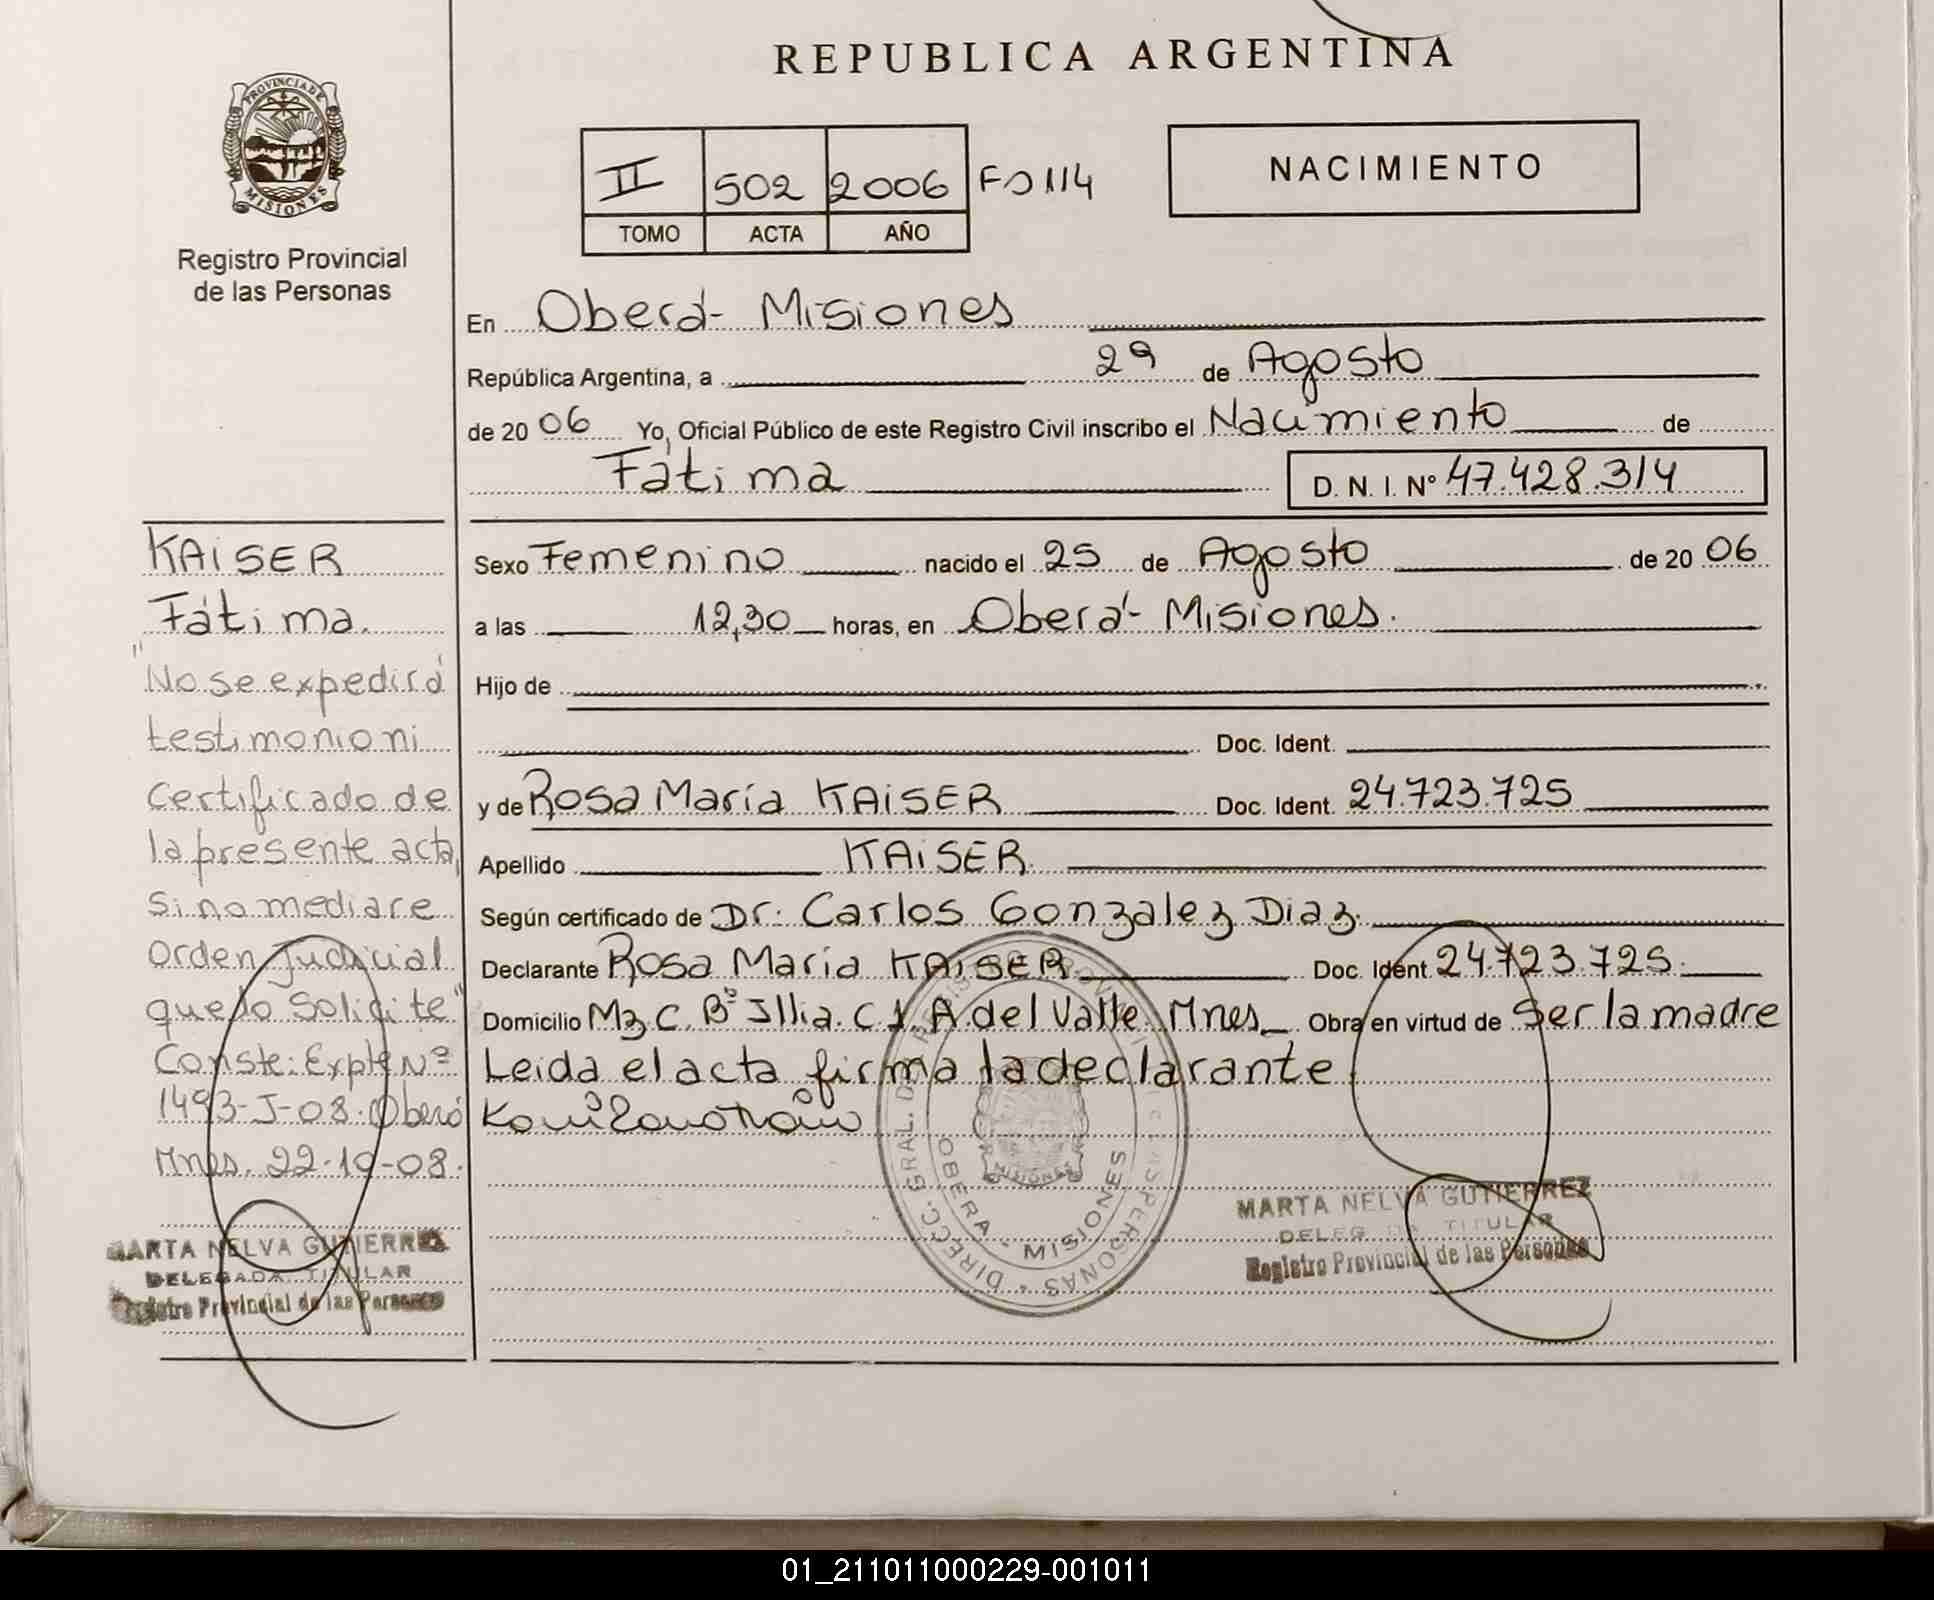 REPUBLICA ARGENTINA
PROVINCIA DE
MISIONES
Registro Provincial
de las Personas
II 502 2006 Fo 114
TOMO ACTA AÑO
NACIMIENTO
En Oberá- Misiones
República Argentina, a 29 de Agosto
de 20 06 Yo, Oficial Público de este Registro Civil inscribo el Nacimiento de
Fátima D. N. I. Nº 47.428.314
Sexo Femenino nacido el 25 de Agosto de 20 06
a las 12,30 horas, en Oberá- Misiones.
Hijo de
Doc. Ident.
y de Rosa María KAiSER Doc. Ident. 24.723.725
Apellido KAiSER.
Según certificado de Dr: Carlos Gonzalez Diaz.
Declarante Rosa María KAiSER Doc. Ident. 24.723.725.
Domicilio Mz C. Bº Illia. C 1. A del Valle. Mnes_ Obra en virtud de Ser la madre
Leida el acta firma la declarante
KAiSER
Fátima.
"No se expedirá
testimonio ni
Certificado de
la presente acta,
Si no mediare
Orden Judicial
que lo Solicite"
Conste: Expte Nº
1493-J-08. Oberá
Mnes. 22-10-08.
MARTA NELVA GUTIERREZ
DELEGADA TITULAR
Registro Provincial de las Personas
DIRECC. GRAL. DE REGISTRO PROVINCIAL DE LAS PERSONAS
OBERA - MISIONES
MISIONES
MARTA NELVA GUTIERREZ
DELEGADA TITULAR
Registro Provincial de las Personas
01_211011000229-001011